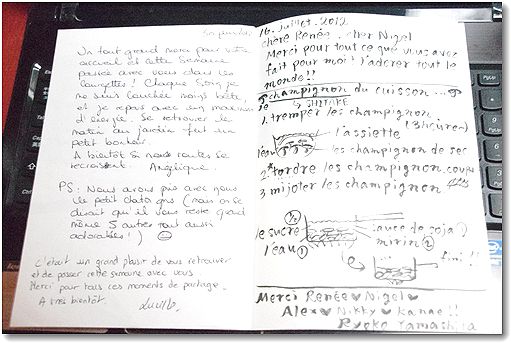 Un tout grand merci pour votre
accueil et cette semaine
passée avec vous dans les
courgettes! Chaque stong je
me suis couchée moins bête,
et je repars avec un maximum
d'énergie. Se retrouver le
matin au jardin fut un
petit bonheur.
A bientôt si nos routes se
recroisent. Angélique.
PS: Nous avons pris avec nous
le petit chat gris (nous on se
disait qu'il vous reste quand
même 5 autres tout aussi
adorables!)
C'était un grand plaisir de vous retrouver
et de passer cette semaine avec vous.
Merci pour tous ces moments de partage.
A très bientôt
16. Juillet. 2012
chère Renée. cher Nigel
Merci pour tout ce que vous avez
fait pour moi! l'adorer tout le
monde!!
champignon du cuisson
SHIITAKE
1. tremper les champignon
(3heuren)
l'assiette
l'eau
les champignon de sec
2 tordre les champignon. coups
3 mijoter les champignon
le sucre
sauce de soja 1
l'eau 1
mirin 2
fini!!
Merci Renée ♥ Nigel ♥
Alex ♥ Nikky ♥ Kanae!!
Ryoko Yamashita